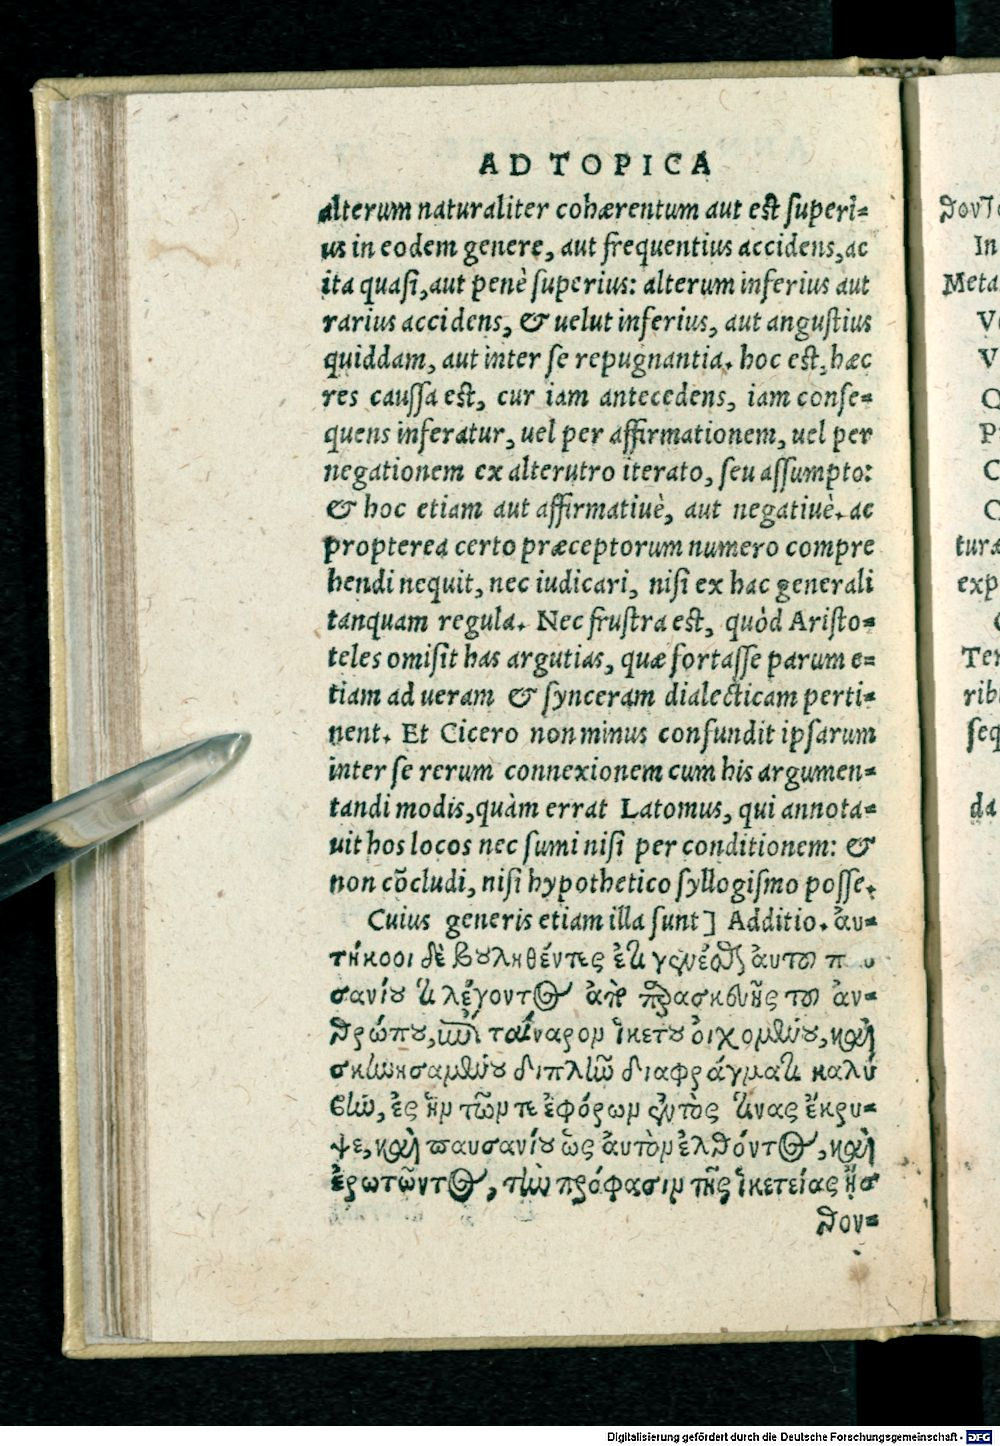 AD TOPICA
alterum naturaliter cohærentum aut est superi=
us in eodem genere, aut frequentius accidens, ac
ita quasi, aut penè superius: alterum inferius aut
rarius accidens, & uelut inferius, aut angustius
quiddam, aut inter se repugnantia. hoc est, hæc
res caussa est, cur iam antecedens, iam conse=
quens inferatur, uel per affirmationem, uel per
negationem ex alterutro iterato, seu assumpto:
& hoc etiam aut affirmatiuè, aut negatiuè. ac
propterea certo præceptorum numero compre
hendi nequit, nec iudicari, nisi ex hac generali
tanquam regula. Nec frustra est, quòd Aristo=
teles omisit has argutias, quæ fortasse parum e=
tiam ad ueram & synceram dialecticam perti=
nent. Et Cicero non minus confundit ipsarum
inter se rerum connexionem cum his argumen=
tandi modis, quàm errat Latomus, qui annota=
uit hos locos nec sumi nisi per conditionem: &
non cōcludi, nisi hypothetico syllogismo posse.
Cuius generis etiam illa sunt] Additio. ἀυ=
τήκοοι δὲ βουληθέντες ἔτι γενέσθαι ἀυτοῦ
σανίου τι λέγοντος ἀπὸ παρασκευῆς τοῦ ἀν=
θρώπου, ἐπὶ ταίναρον ἱκετου οἰχομένου, καὶ
σκηνησαμένου διπλῶ διαφράγματι καλύ
βην, ἐς ἣν τῶν τε ἐφόρων ἐντὸς τινας ἔκρυ=
ψε, καὶ παυσανίου ὡς ἀυτὸν ἐλθόντος, καὶ
ἐρωτῶντος, τὴν πρόφασιν τῆς ἱκετείας ἤσ
θον=
θοντο
In
Meta
V
Q
P
C
turæ
exp
Ter
rib
seq
da
Digitalisierung gefördert durch die Deutsche Forschungsgemeinschaft - DFG